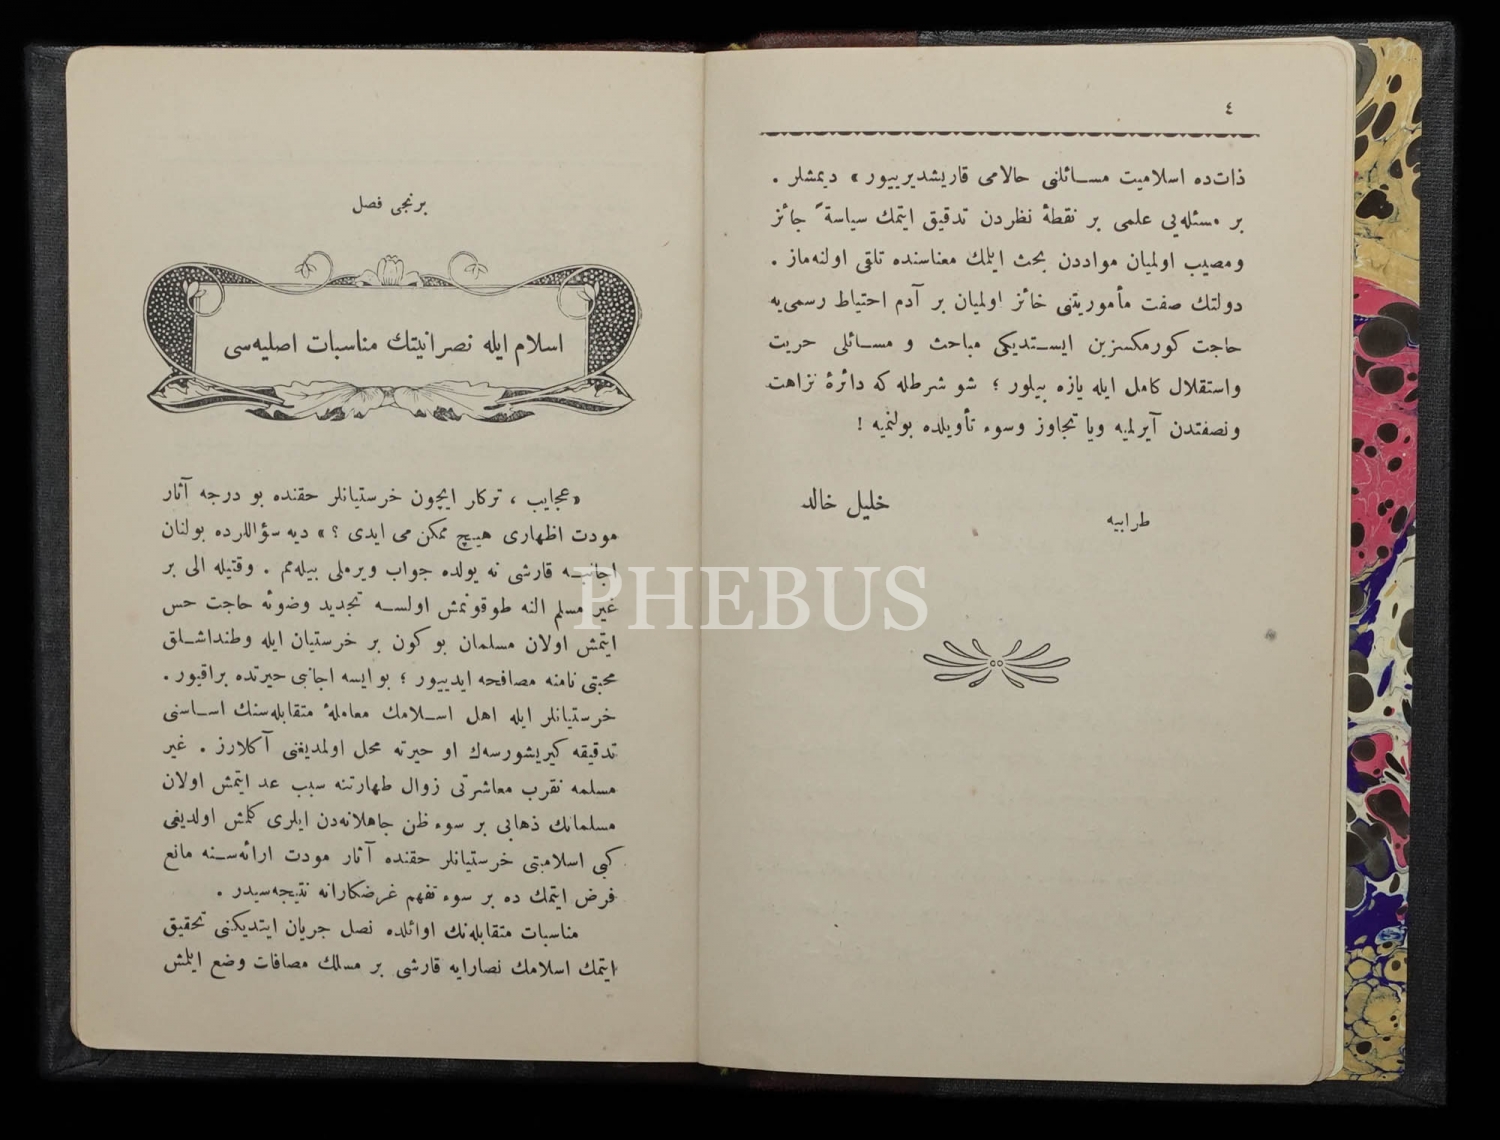 ٤
ذات‌ده اسلامیت مسائلنی حالامی قاریشدیرییور» دیمشلر .
بر مسئله‌یی علمی بر نقطهٔ نظردن تدقیق ایتمك سیاسةً جائز
ومصیب اولمیان مواددن بحث ایلمك معناسنده تلقی اولنه‌ماز .
دولتك صفت مأموریتنی حائز اولمیان بر آدم احتیاط رسمی‌یه
حاجت كورمكسزین ایستدیكی مباحث و مسائلی حریت
واستقلال كامل ایله یازه بیلور ؛ شو شرطله كه دائرهٔ نزاهت
ونصفتدن آیرلمیه ویا تجاوز وسوء تأویلده بولنمیه !
طرابیه
خلیل خالد
برنجی فصل
اسلام ایله نصرانیتك مناسبات اصلیه‌سی
«عجایب ، تركلر ایچون خرستیانلر حقنده بو درجه آثار
مودت اظهاری هیچ ممكن می ایدی ؟» دیه سؤاللرده بولنان
اجانبه قارشی نه یولده جواب ویرملی بیله‌مم . وقتیله الی بر
غیر مسلم النه طوقونمش اولسه تجدید وضوئه حاجت حس
ایتمش اولان مسلمان بو كون بر خرستیان ایله وطنداشلق
محبتی نامنه مصافحه ایدییور ؛ بو ایسه اجانبی حیرتده براقیور .
خرستیانلر ایله اهل اسلامك معاملهٔ متقابله‌سنك اساسنی
تدقیقه كیریشورسه‌ك او حیرته محل اولمدیغنی آكلارز . غیر
مسلمه تقرب معاشرتی زوال طهارتنه سبب عد ایتمش اولان
مسلمانك ذهابی بر سوء ظن جاهلانه‌دن ایلری كلمش اولدیغی
كبی اسلامیتی خرستیانلر حقنده آثار مودت ارائه‌سنه مانع
فرض ایتمك ده بر سوء تفهم غرضكارانه نتیجه‌سیدر .
مناسبات متقابله‌نك اوائلده نصل جریان ایتدیكنی تحقیق
ایتمك اسلامك نصارایه قارشی بر مسلك مصافات وضع ایلمش
PHEBUS